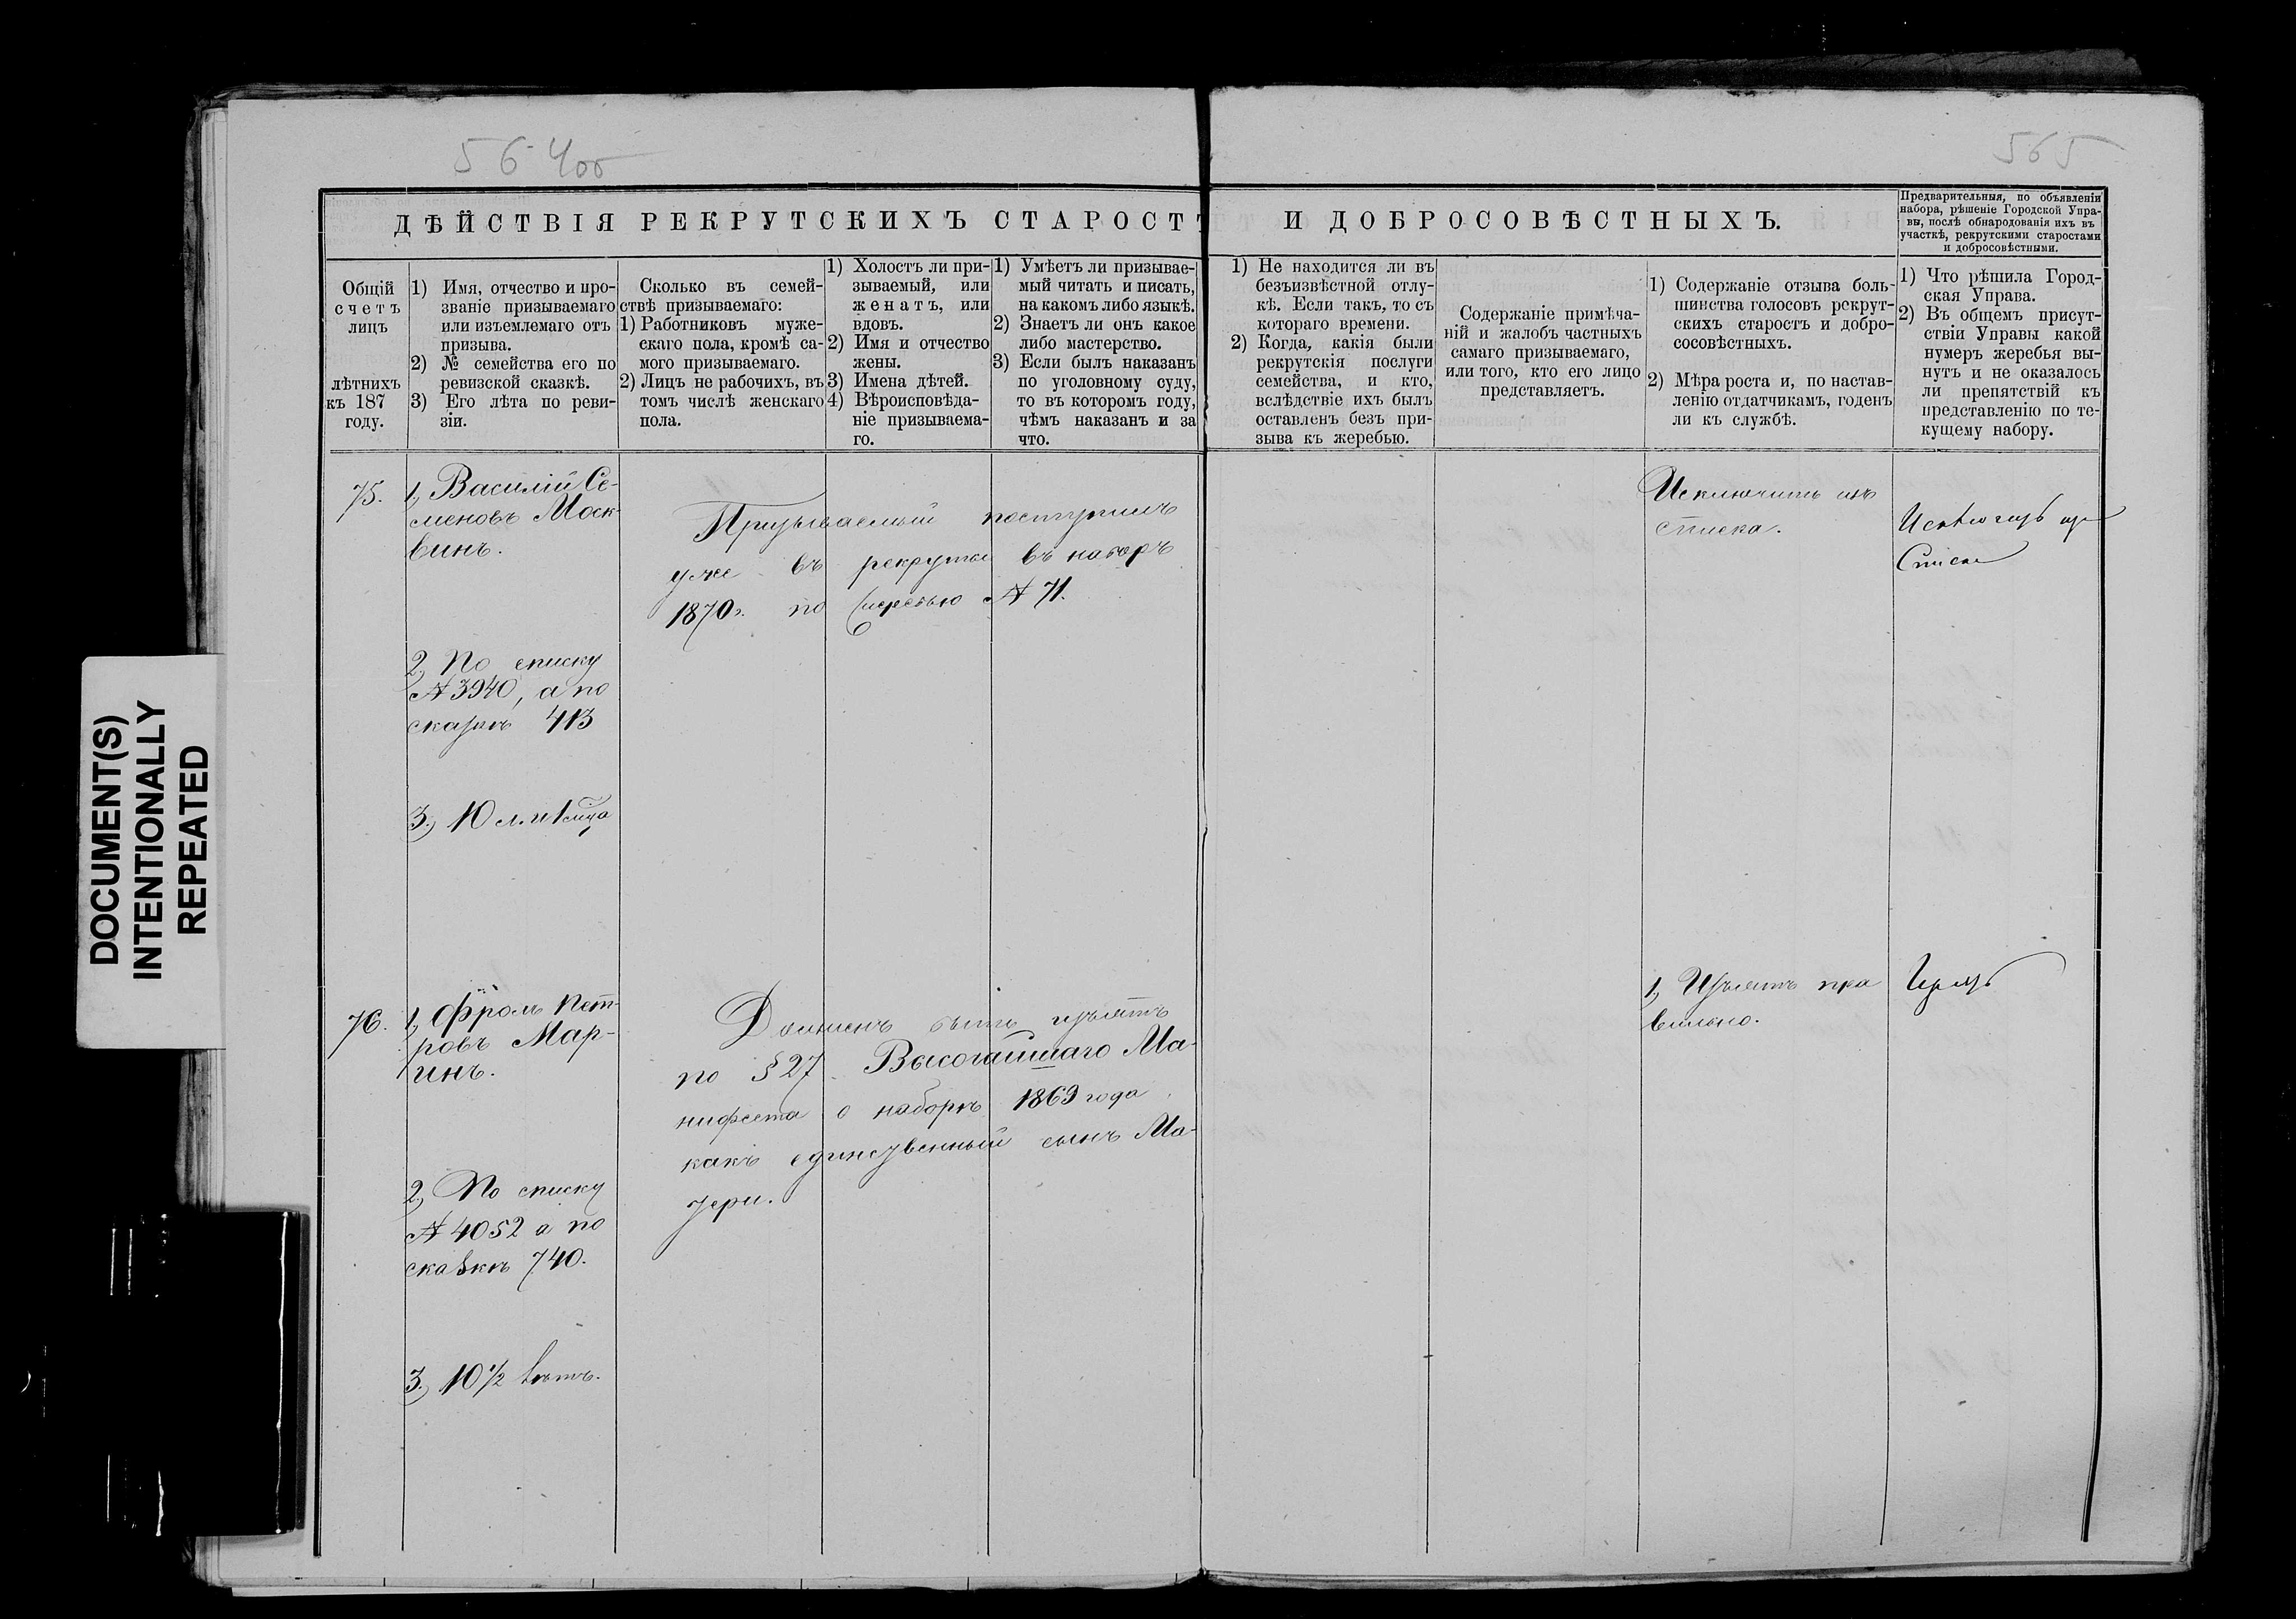 564об
565
ДѢЙСТВІЯ РЕКРУТСКИХЪ СТАРОСТЪ И ДОБРОСОВѢСТНЫХЪ.
Предварительныя, по объявленіи
набора, рѣшеніе Городской Упра-
вы, послѣ обнародованія ихъ въ
участкѣ, рекрутскими старостами
и добросовѣстными.
Общій
счетъ
лицъ
лѣтнихъ
къ 187
году.
1) Имя, отчество и про-
званіе призываемаго
или изъемлемаго отъ
призыва.
2) № семейства его по
ревизской сказкѣ.
3) Его лѣта по реви-
зіи.
Сколько въ семей-
ствѣ призываемаго:
1) Работниковъ муже-
скаго пола, кромѣ са-
мого призываемаго.
2) Лицъ не рабочихъ, въ
томъ числѣ женскаго
пола.
1) Холостъ ли при-
зываемый, или
женатъ, или
вдовъ.
2) Имя и отчество
жены.
3) Имена дѣтей.
4) Вѣроисповѣда-
ніе призываема-
го.
1) Умѣетъ ли призывае-
мый читать и писать,
на какомъ либо языкѣ.
2) Знаетъ ли онъ какое
либо мастерство.
3) Если былъ наказанъ
по уголовному суду,
то въ которомъ году,
чѣмъ наказанъ и за
что.
1) Не находится ли въ
безъизвѣстной отлу-
кѣ. Если такъ, то съ
котораго времени.
2) Когда, какія были
рекрутскія послуги
семейства, и кто,
вслѣдствіе ихъ былъ
оставленъ безъ при-
зыва къ жеребью.
Содержаніе примѣча-
ній и жалобъ частныхъ
самаго призываемаго,
или того, кто его лицо
представляетъ.
1) Содержаніе отзыва боль-
шинства голосовъ рекрут-
скихъ старостъ и добро-
сосовѣстныхъ.
2) Мѣра роста и, по настав-
ленію отдатчикамъ, годенъ
ли къ службѣ.
1) Что рѣшила Город-
ская Управа.
2) Въ общемъ присут-
ствіи Управы какой
нумеръ жеребья вы-
нутъ и не оказалось
ли препятствій къ
представленію по те-
кущему набору.
75.
1) Василій Се-
меновъ Моск-
винъ.
2) По списку
№ 3940, а по
сказкѣ 413
3) 10 л. и 1 мѣца
Призываемый поступилъ
уже въ рекруты въ наборъ
1870 г. по жеребью № 71.
Исключить изъ
списка.
Исключить из
Списка
76.
1) Фролъ Пет-
ровъ Мар-
инъ.
2) По списку
№ 4052 а по
сказкѣ 740.
3) 10 1/2 лѣтъ.
Долженъ быть изъятъ
по § 27 Высочайшаго Ма-
нифеста о наборѣ 1869 года,
какъ единственный сынъ Ма-
тери.
1) Изъятъ пра
вильно.
DOCUMENT(S)
INTENTIONALLY
REPEATED